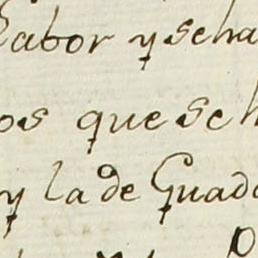 Labor y se ha
os que se h
y la de Guada